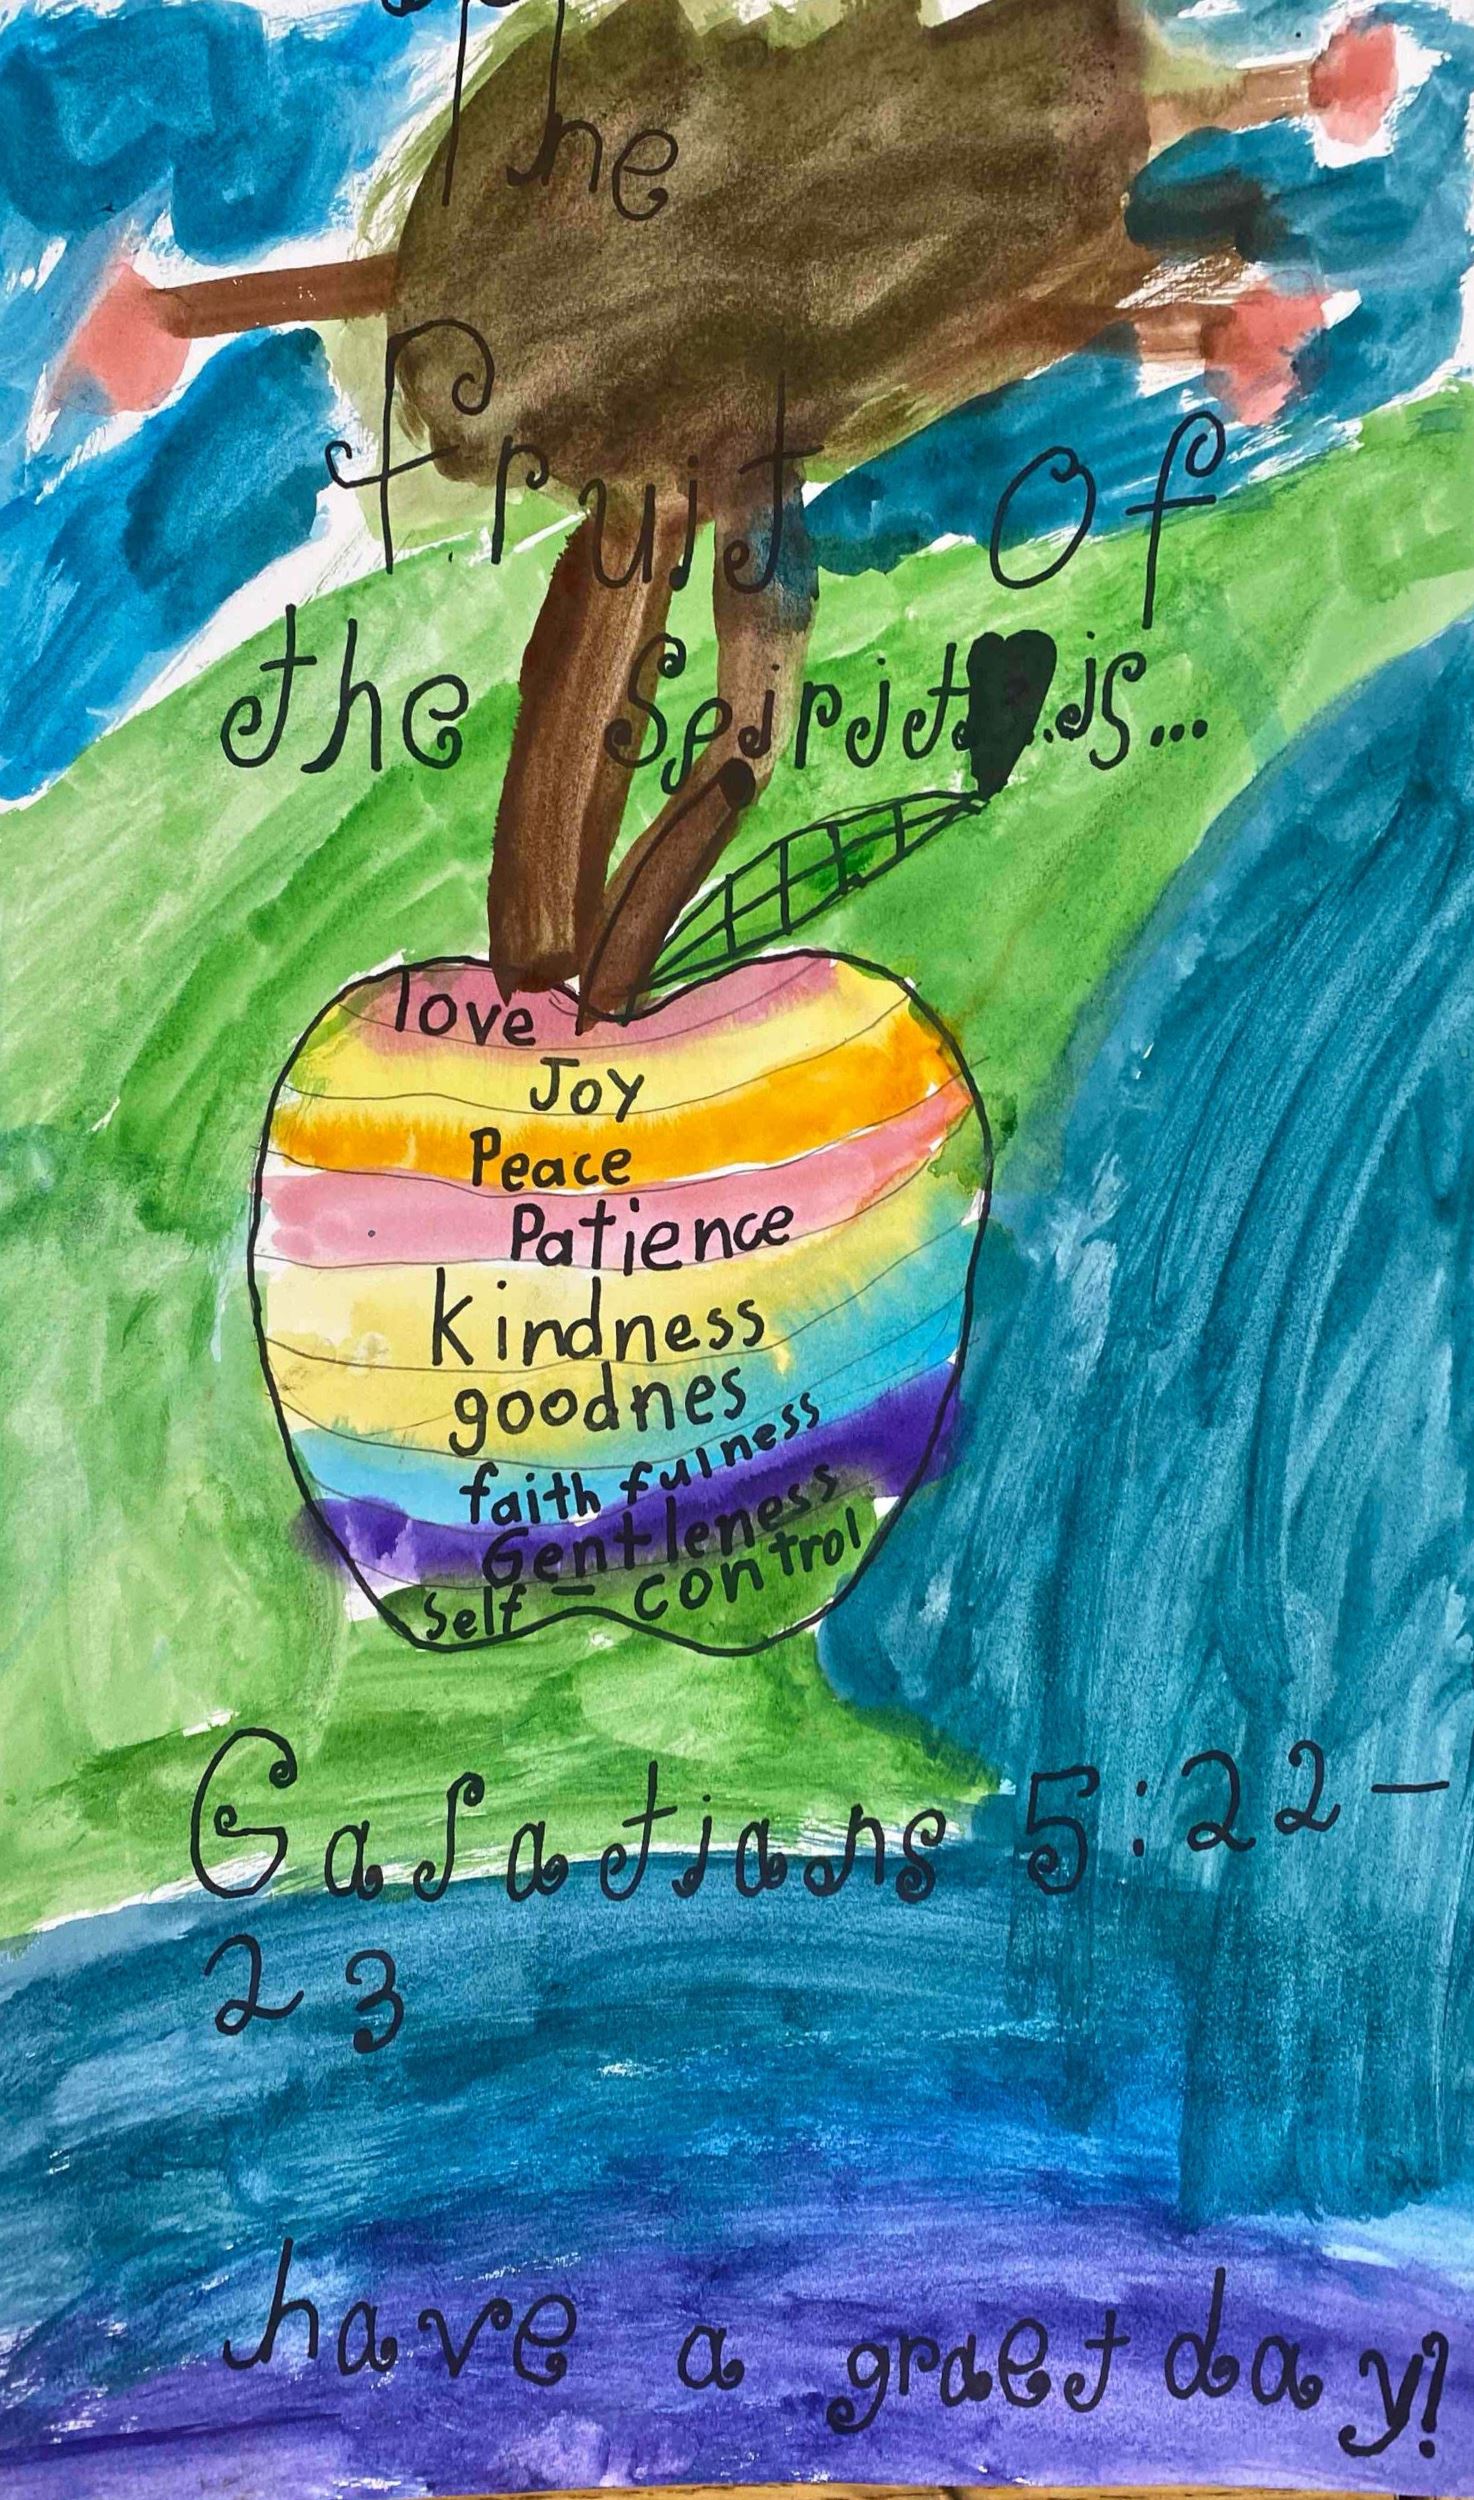 The
fruit Of
the Spirit...is...
love
Joy
Peace
Patience
kindness
goodnes
faithfulness
Gentleness
Self-control
Galatians 5:22-
23
have a graet day!